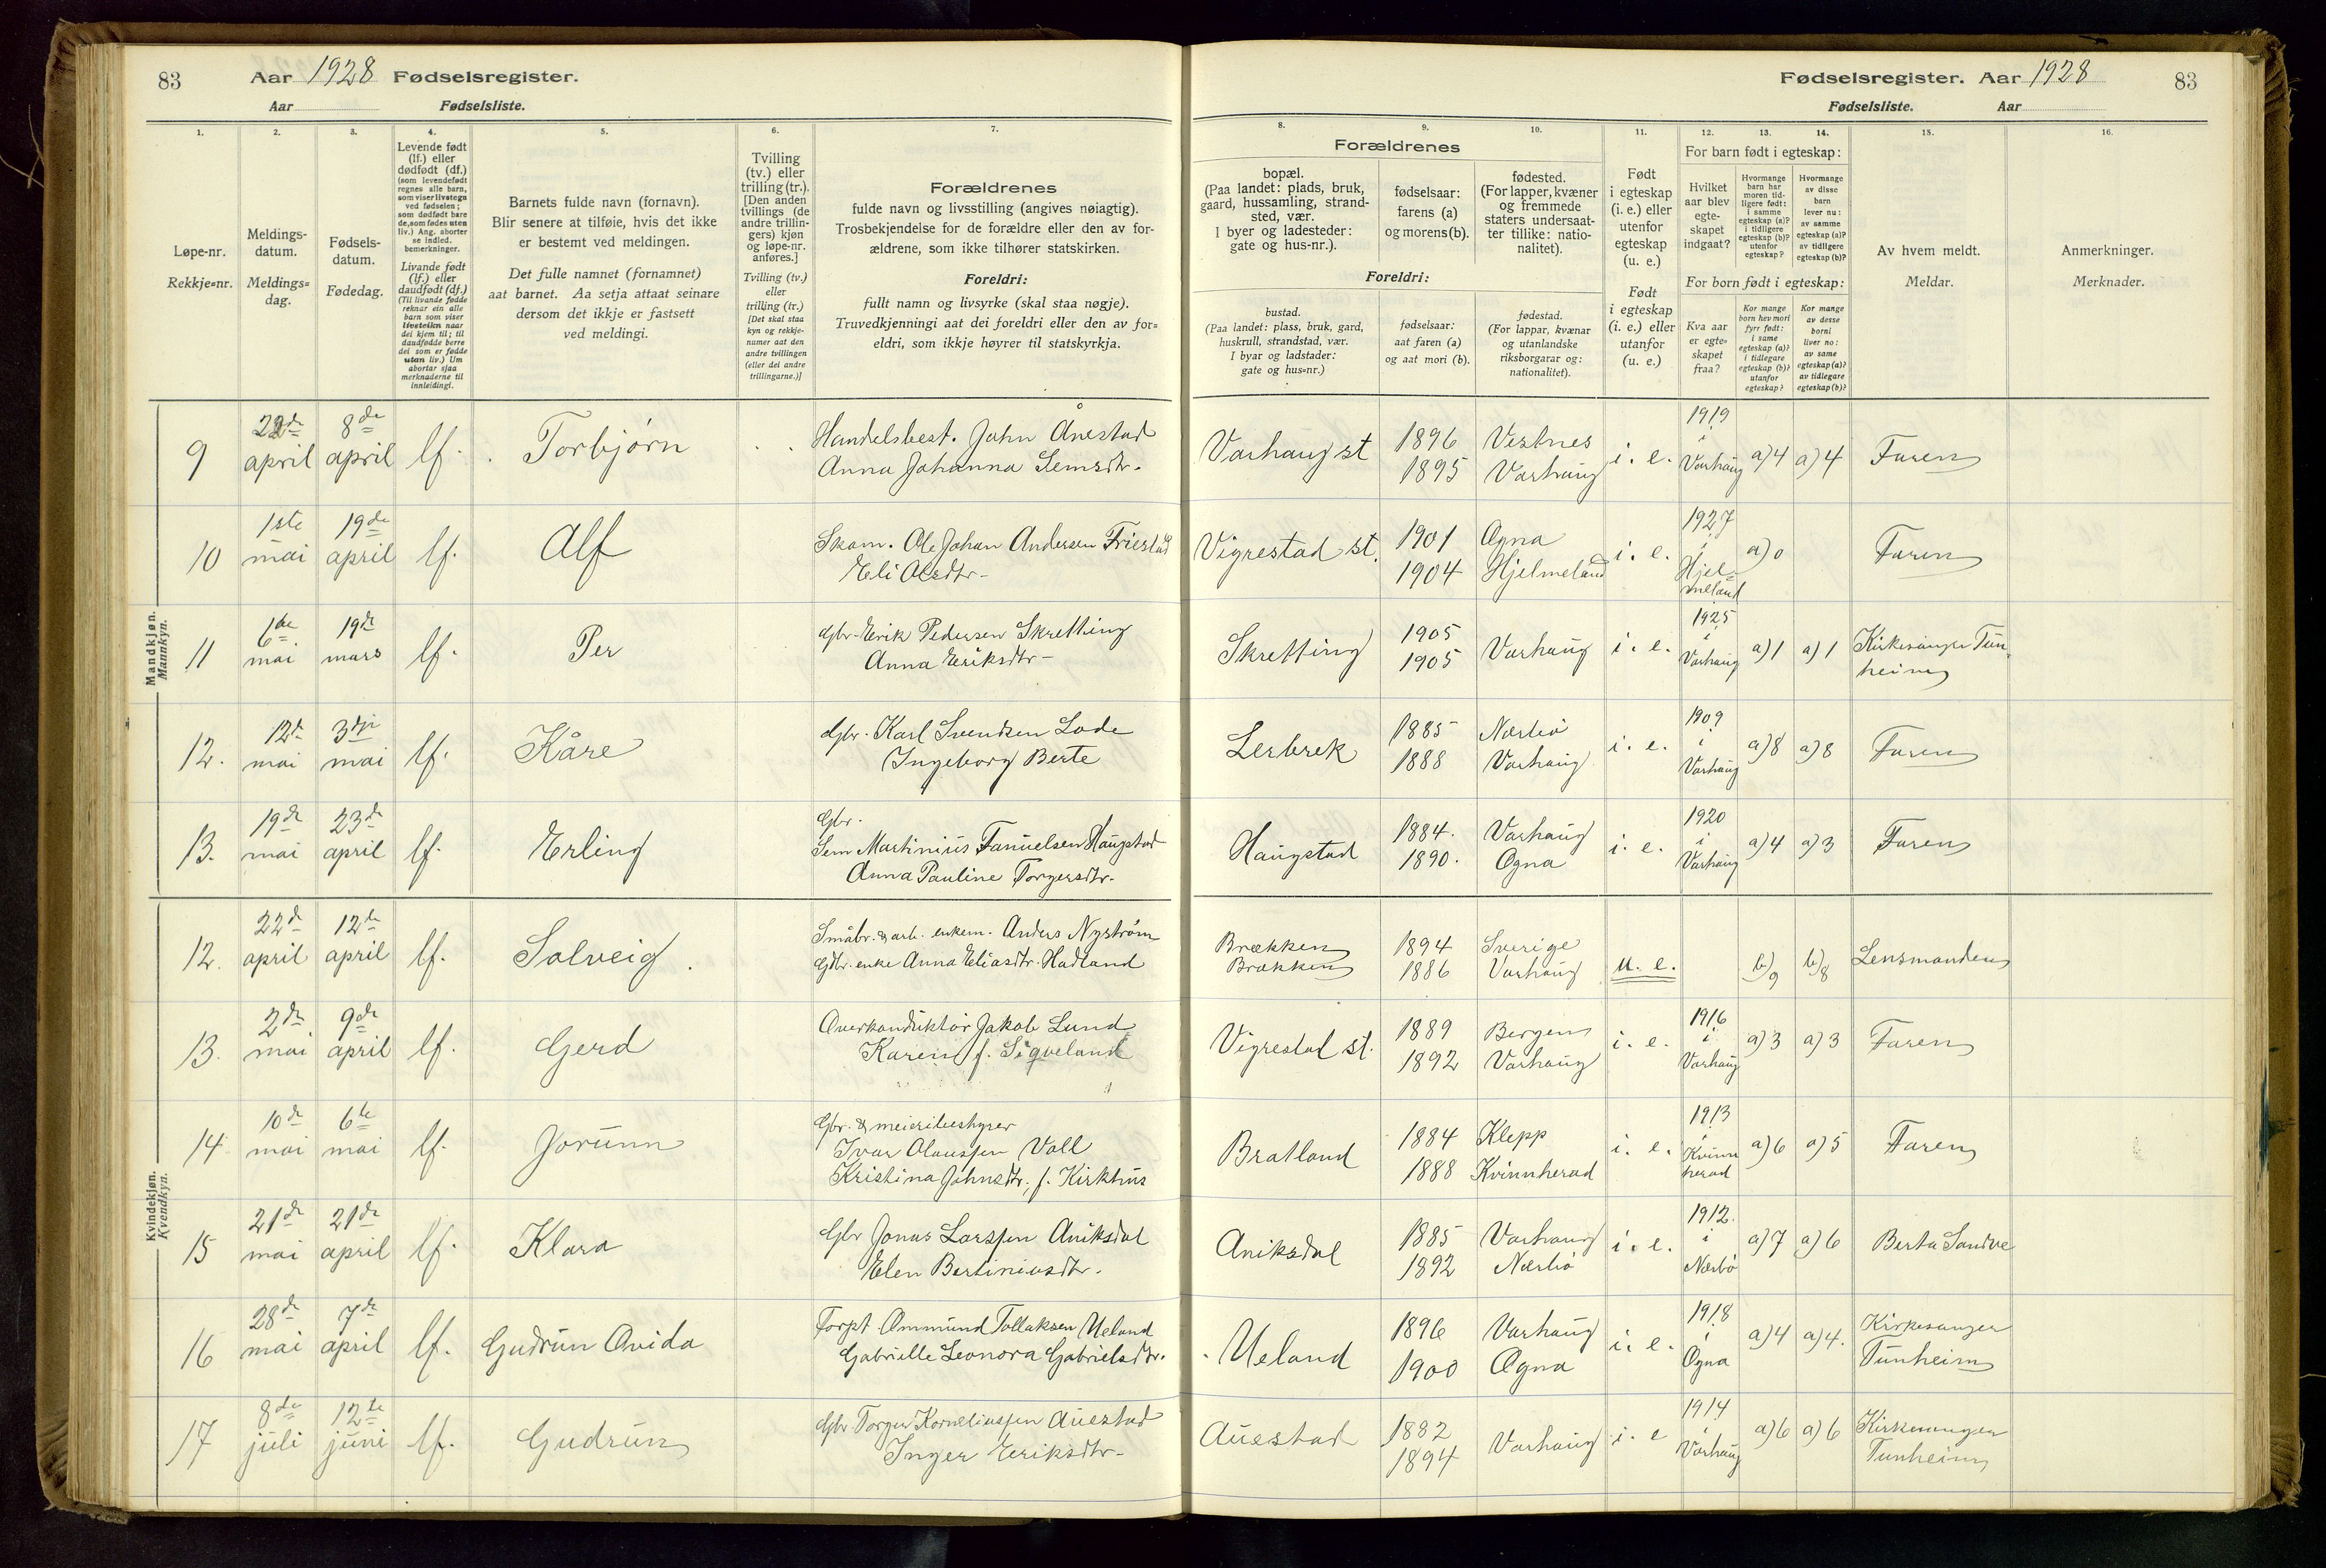 83 Aar 1928 Fødselsregister.
Aar Fødselsliste.
Fødselsregister. Aar 1928 83
Fødselsliste. Aar
1. 2. 3. 4. 5. 6. 7.
Løpe-nr.
Rekkje=nr.
Meldings-
datum.
Meldings=
dag.
Fødsels-
datum.
Fødedag.
Levende født
(lf.) eller
dødfødt (df.)
(som levendefødt
regnes alle barn,
som viser livstegn
ved fødselen;
som dødfødt bare
de, som fødes uten
liv.) Ang. aborter
se indled.
bemerkninger.
Livande født
(lf.) eller
daudfødt (df.)
(Til livande fødde
reknar ein alle
barn som viser
livsteikn naar
dei kjem til; til
daudfødde berre
dei som er fødde
utan liv.) Um
abortar sjaa
merknaderne til
innleidingi.
Barnets fulde navn (fornavn).
Blir senere at tilføie, hvis det ikke
er bestemt ved meldingen.
Det fulle namnet (fornamnet)
aat barnet. Aa setja attaat seinare
dersom det ikkje er fastsett
ved meldingi.
Tvilling
(tv.) eller
trilling (tr.).
[Den anden
tvillings (de
andre trillin-
gers) kjøn
og løpe-nr.
anføres.]
Tvilling (tv.)
eller
trilling (tr.)
[Det skal staa
kyn og rekkje-
numer aat den
andre tvillingen
(eller dei andre
trillingarne.)]
Forældrenes
fulde navn og livsstilling (angives nøiagtig).
Trosbekjendelse for de forældre eller den av for-
ældrene, som ikke tilhører statskirken.
Foreldri:
fullt namn og livsyrke (skal staa nøgje).
Truvedkjenningi aat dei foreldri eller den av for=
eldri, som ikkje høyrer til statskyrkja.
8. 9. 10. 11. 12. 13. 14. 15. 16.
Forældrenes
bopæl.
(Paa landet: plads, bruk,
gaard, hussamling, strand-
sted, vær.
I byer og ladesteder:
gate og hus-nr.).
fødselsaar:
farens (a)
og morens (b).
fødested.
(For lapper, kvæner
og fremmede
staters undersaat-
ter tillike: natio-
nalitet).
Foreldri:
bustad.
(Paa landet: plass, bruk, gard,
huskrull, strandstad, vær.
I byar og ladstader:
gate og hus=nr.)
fødselsaar:
aat faren (a)
og aat mori (b).
fødestad.
(For lappar, kvænar
og utanlandske
riksborgarar og:
nationalitet).
Født
i egteskap
(i. e.) eller
utenfor
egteskap
(u. e.)
Født
i egteskap
(i. e.) eller
utanfor
(u. e.)
For barn født i egteskap:
Hvilket
aar blev
egte-
skapet
indgaat?
Hvormange
barn har
moren tid-
ligere født:
i samme
egteskap (a)?
i tidligere
egteskap (b)?
utenfor
egteskap?
Hvormange
av disse
barn
lever nu:
av samme
egteskap (a)?
av tidligere
egteskap (b)?
For born født i egteskap:
Kva aar
er egte=
skapet
fraa?
Kor mange
born hev mori
fyrr født:
i same
egteskap (a)?
i tidlegare
egteskap (b)?
utanfor
egteskap?
Kor mange
av desse
borni
liver no:
av same
egteskap (a)?
av tidlegare
egteskap (b)?
Av hvem meldt.
Meldar.
Anmerkninger.
Merknader.
Mandkjøn.
Mannkyn.
9 22de april 8de april lf. Torbjørn Handelsbest. John Ånestad
Anna Johanna Semsdtr. Varhaug st 1896 1895 Vestnes Varhaug i. e. 1919 i Varhaug a) 4 a) 4 Faren
10 1ste mai 19de april lf. Alf Skom. Ole Johan Andersen Friestad
Eli Olsdtr. Vigrestad st. 1901 1904 Ogna Hjelmeland i. e. 1927 i Hjel-
meland a) 0 Faren
11 6te mai 19de mars lf. Per Gbr. Erik Pedersen Skretting
Anna Eriksdtr. Skretting 1905 1905 Varhaug i. e. 1925 i Varhaug a) 1 a) 1 Kirkesanger Tun-
heim
12. 12te mai 3dje mai lf. Kåre Gbr. Karl Svendsen Lode
Ingeborg Berte Lerbrek 1885 1888 Nærbø Varhaug i. e. 1909 i Varhaug a) 8 a) 8 Faren
13. 19de mai 23de april lf. Erling Gbr.
Sem Martinius Fanuelsen Haugstad
Anna Pauline Torgersdtr. Haugstad 1884. 1890. Varhaug Ogna i. e. 1920 i Varhaug a) 4 a) 3 Faren
Kvindekjøn.
Kvendkyn.
12. 22de april 12te april lf. Solveig. Småbr. & arb. enkem. Anders Nystrøm
Gdbr. enke Anna Eliasdtr. Hadland Brækken Brækken 1894 1886 Sverige Varhaug u. e. b) 9 b) 8 Lensmanden
13. 2de mai 9de april lf. Gerd Overkonduktør Jakob Lund
Karen f. Sigveland Vigrestad st. 1889 1892 Bergen Varhaug i. e. 1916 i Varhaug a) 3 a) 3 Faren
14 10de mai 6te mai lf. Jorunn Gbr. & meieribestyrer
Ivar Olaussen Voll
Kristina Johnsdtr., f. Kirkhus Bratland 1884 1888 Klepp Kvinnherad i. e. 1913 i Kvinn
herad a) 6 a) 5 Faren
15 21de mai 21de april lf. Klara Gbr Jonas Larssen Aniksdal
Elen Bertiniusdtr. Aniksdal 1885 1892 Varhaug Nærbø i. e. 1912. i Nærbø a) 7 a) 6 Berta Sandve
16 28de mai 7de april lf. Gudrun Ovida Forpt. Ommund Tollaksen Ueland
Gabrielle Leonora Gabrielsdtr. Ueland 1896 1900 Varhaug Ogna i. e. 1918 i Ogna a) 4 a) 4. Kirkesanger
Tunheim
17 8de juli 12te juni lf. Gudrun Gbr Torger Korneliussen Auestad
Inger Eriksdtr. Auestad 1882 1894 Varhaug i. e 1914 i Varhaug a) 6 a) 6 Kirkesanger
Tunheim